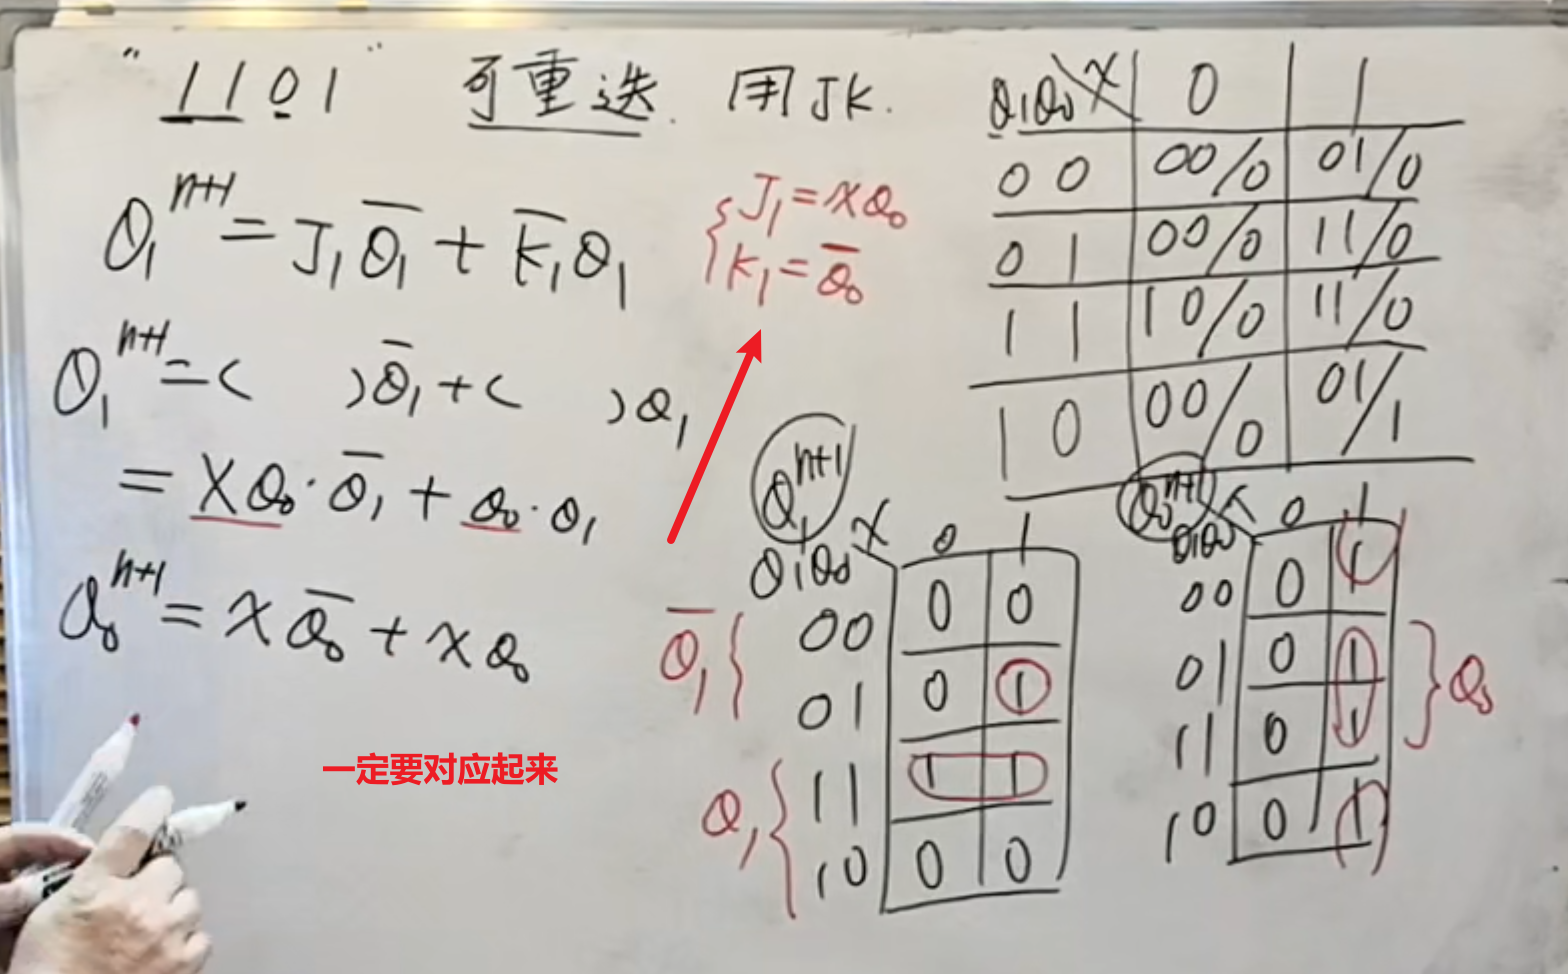 "1101" 可重迭. 用JK.
Q₁ⁿ⁺¹ = J₁Q̅₁ + K̅₁Q₁
{ J₁ = XQ₀
K₁ = Q̅₀
Q₁ⁿ⁺¹ = ( )Q̅₁ + ( )Q₁
= XQ₀·Q̅₁ + Q₀·Q₁
Q₀ⁿ⁺¹ = XQ̅₀ + XQ₀
一定要对应起来
Q₁Q₀\X 0 1
00 00/0 01/0
01 00/0 11/0
11 10/0 11/0
10 00/0 01/1
Q₁ⁿ⁺¹
Q₁Q₀\X 0 1
Q̅₁ {
00 0 0
01 0 1
Q₁ {
11 1 1
10 0 0
Q₀ⁿ⁺¹
Q₁Q₀\X 0 1
00 0 1
01 0 1
11 0 1
} Q₀
10 0 1